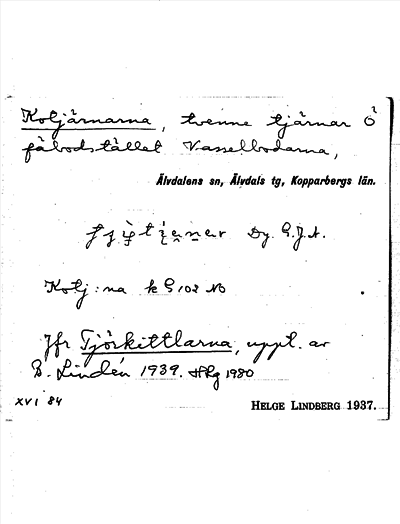 Kotjärnarna, tvenne tjärnar Ö
fäbodstället Vasselbodarna,
Älvdalens sn, Älvdals tg, Kopparbergs län.
Dy. G.J.A.
Kotj:na k G 102 No
Jfr Tjörkittlarna, uppt. av
B. Lindén 1939. HLg 1980
XVI 84
HELGE LINDBERG 1937.